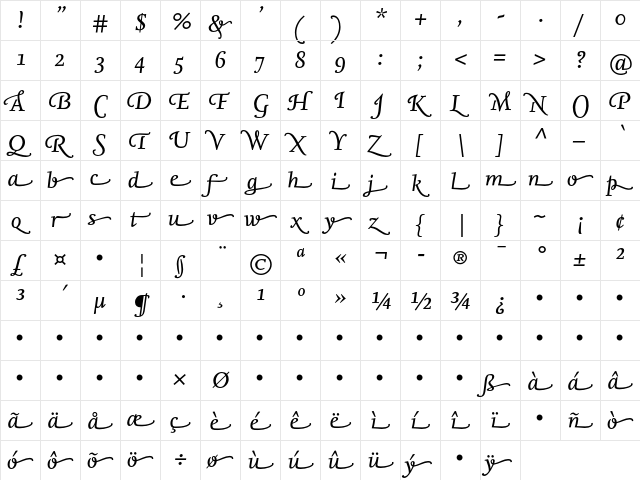 ! " # $ % & ' ( ) * + , - . / 0
1 2 3 4 5 6 7 8 9 : ; < = > ? @
A B C D E F G H I J K L M N O P
Q R S T U V W X Y Z [ \ ] ^ _ `
a b c d e f g h i j k l m n o p
q r s t u v w x y z { | } ~ ¡ ¢
£ ¤ • ¦ § ¨ © ª « ¬ - ® ¯ ° ± ²
³ ´ µ ¶ · ¸ ¹ º » ¼ ½ ¾ ¿ • • •
• • • • • • • • • • • • • • • •
• • • • × Ø • • • • • • ß à á â
ã ä å æ ç è é ê ë ì í î ï • ñ ò
ó ô õ ö ÷ ø ù ú û ü ý • ÿ